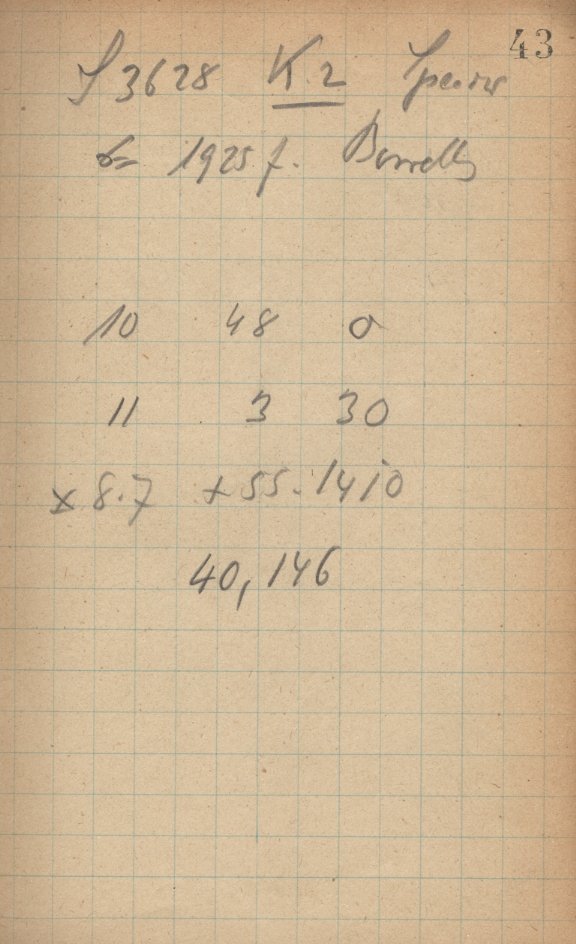 43
S 3628 K 2
= 1925 f. Borrelly
10 48 0
11 3 30
x 8.7 + 55.1410
40,146